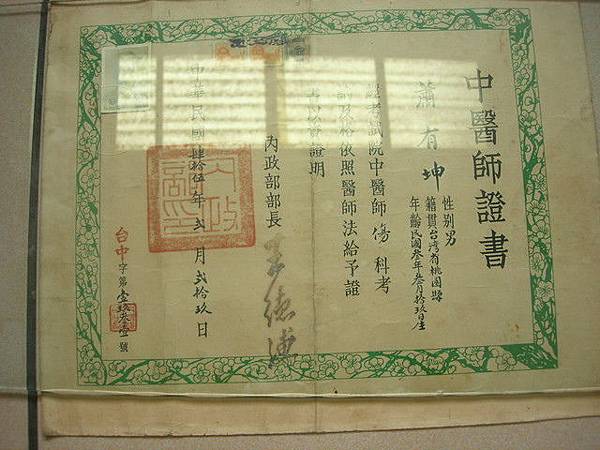 中醫師證書
蕭有坤
性別男
籍貫台湾省桃園縣
年齡民國叁年叁月拾玖日生
經考試院中醫師傷科考
試及格依照醫師法給予證
書以資證明
內政部部長
王德溥
中華民國肆拾伍年貳月貳拾玖日
內政部印
台中字第壹玖叁壹號